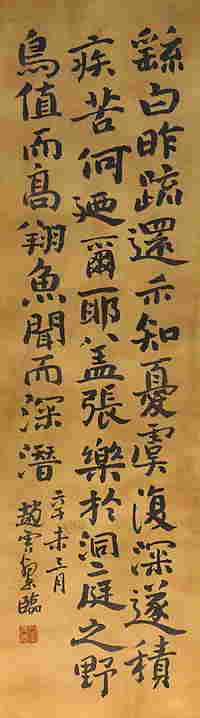 繇白昨疏還示知憂虞復深遂積
疾苦何迺爾耶盖張樂於洞庭之野
鳥值而高翔魚聞而深潛
辛未三月
趙雲壑臨